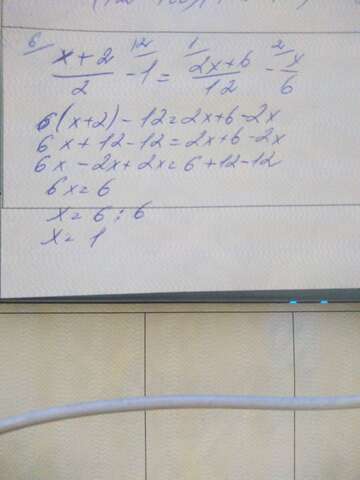 6/ 12/ 1/ 2/
x+2/2 - 1 = 2x+6/12 - x/6
6(x+2) - 12 = 2x+6-2x
6x+12-12 = 2x+6-2x
6x-2x+2x=6+12-12
6x=6
x=6:6
x=1